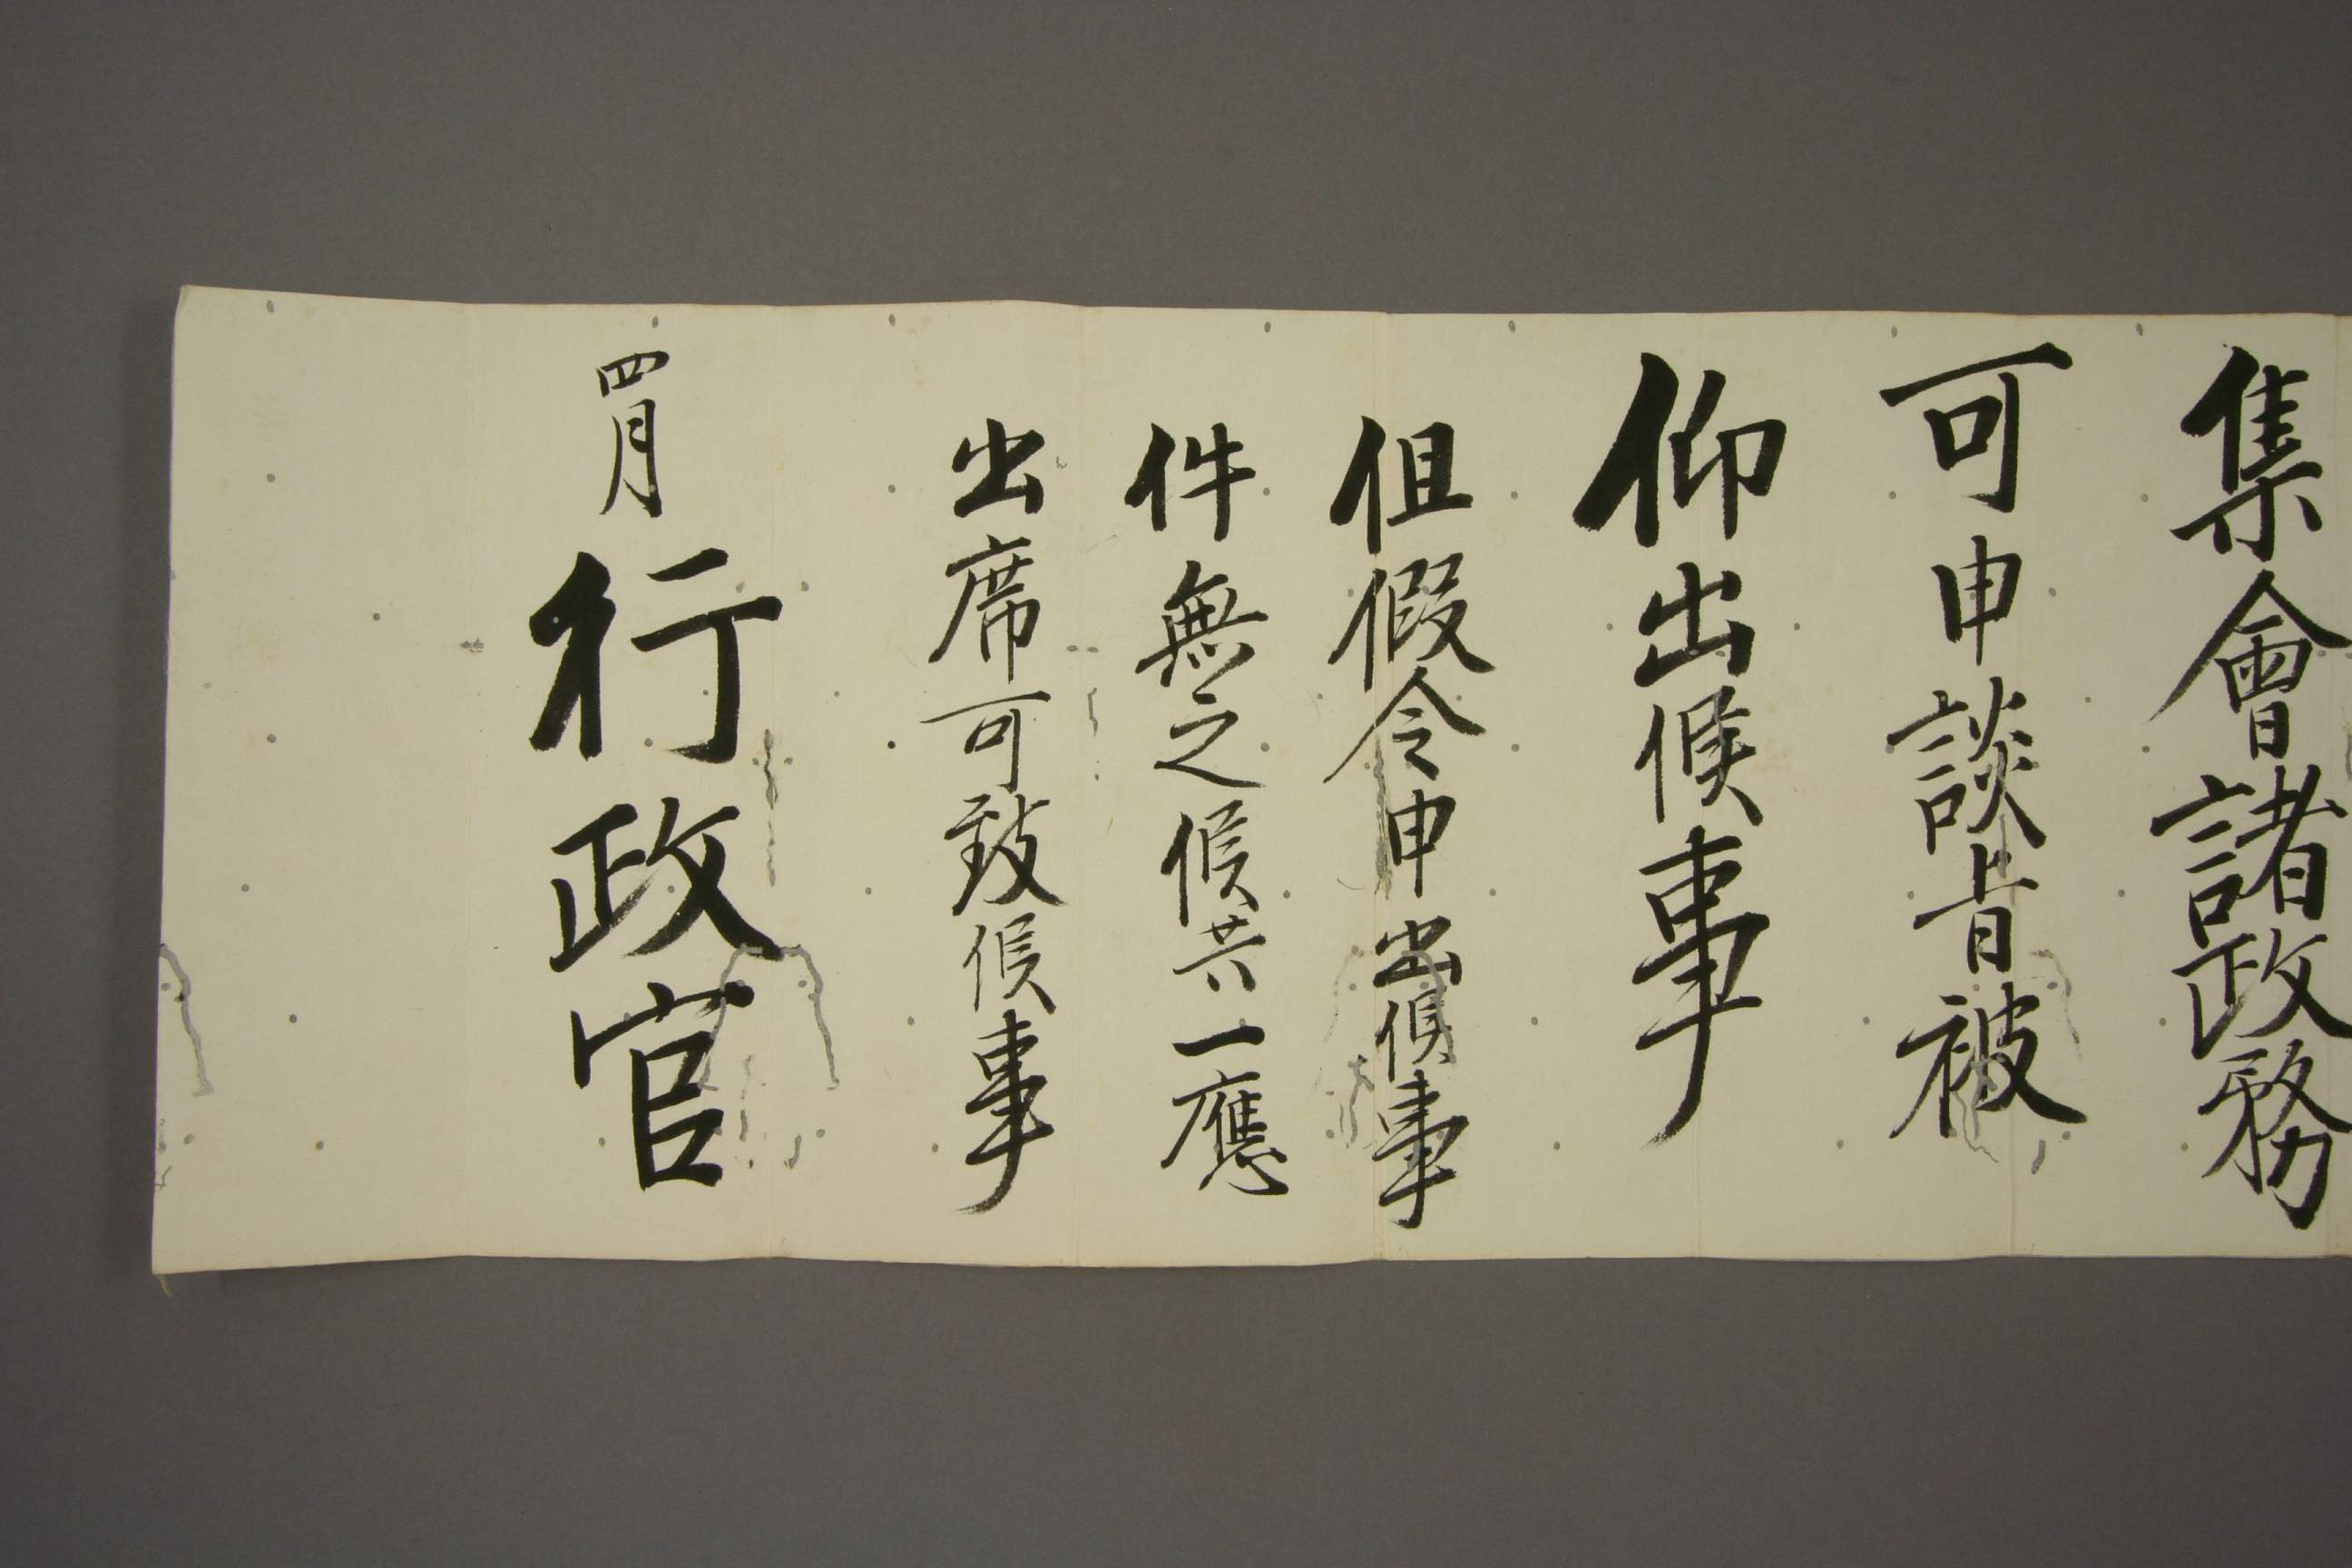 集會諸政務
可申談旨被
仰出候事
但假令申出候事
件無之候共一應
出席可致候事
四月 行政官